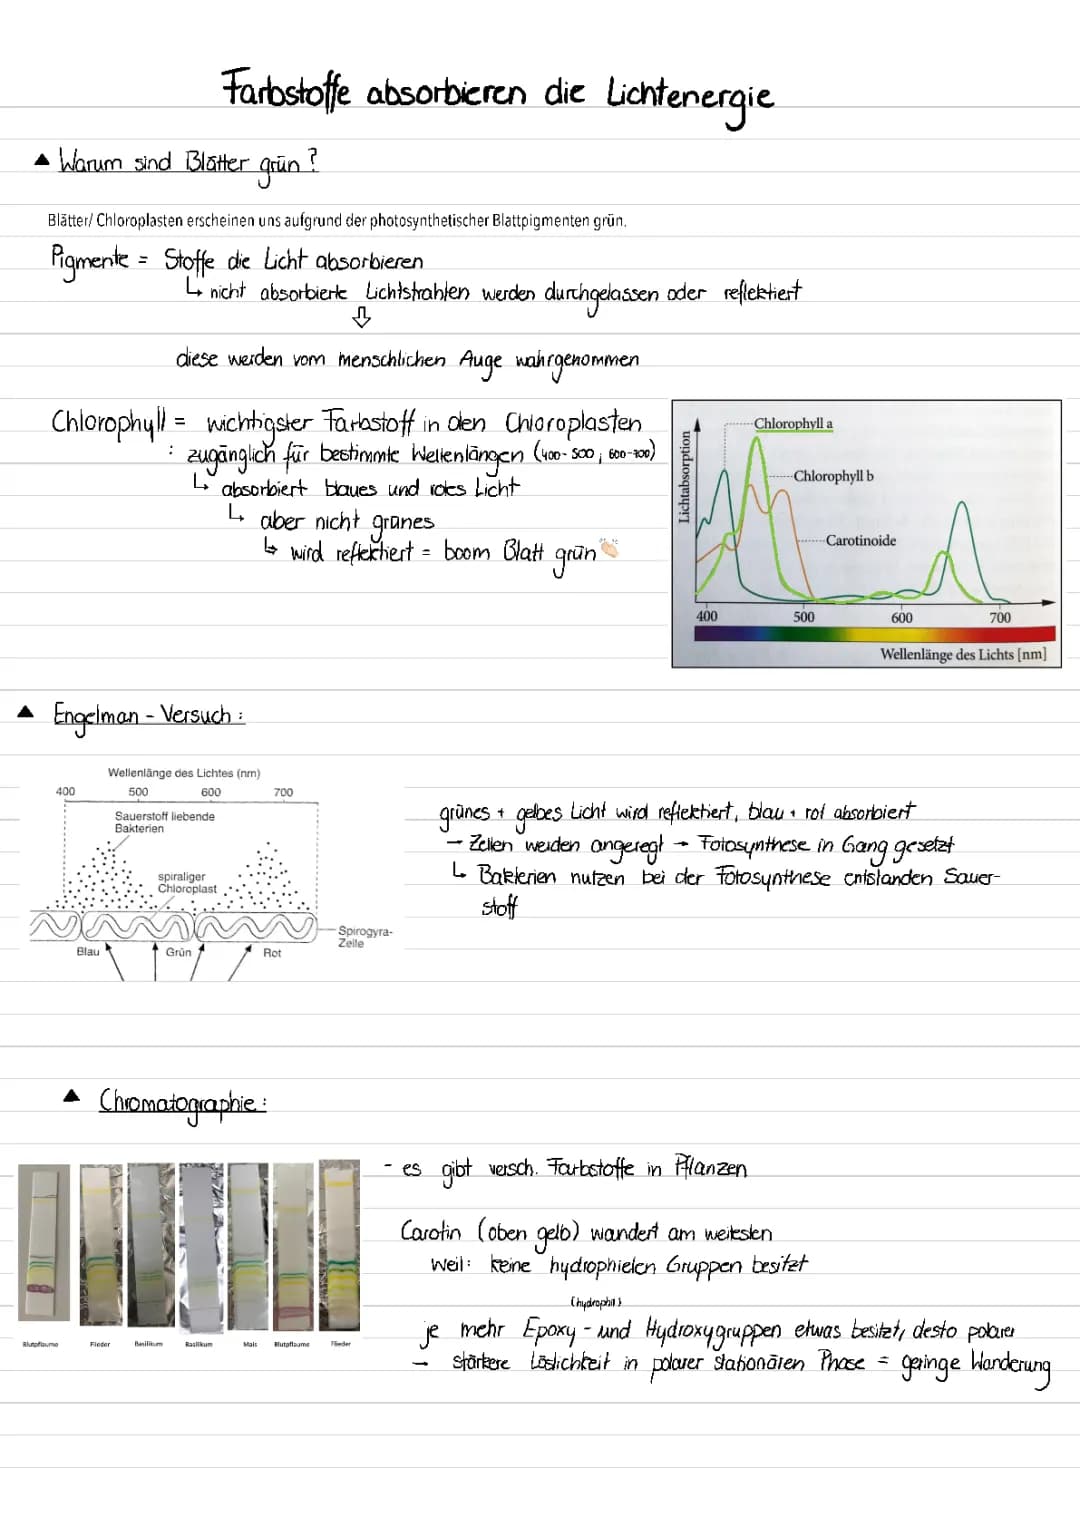 Farbstoffe absorbieren die Lichtenergie
▲ Warum sind Blätter grün?
Blätter/ Chloroplasten erscheinen uns aufgrund der photosynthetischer Blattpigmenten grün.
Pigmente = Stoffe die Licht absorbieren
↳ nicht absorbierte Lichtstrahlen werden durchgelassen oder reflektiert
⇩
diese werden vom menschlichen Auge wahrgenommen
Chlorophyll = wichtigster Farbstoff in den Chloroplasten
: zugänglich für bestimmte Wellenlängen (400-500; 600-700)
↳ absorbiert blaues und rotes Licht
↳ aber nicht grünes
↳ wird reflektiert = boom Blatt grün 👏🏻
Lichtabsorption
Chlorophyll a
Chlorophyll b
Carotinoide
400 500 600 700
Wellenlänge des Lichts [nm]
▲ Engelman - Versuch:
Wellenlänge des Lichtes (nm)
400 500 600 700
Sauerstoff liebende
Bakterien
spiraliger
Chloroplast
Spirogyra-
Zelle
Blau Grün Rot
grünes + gelbes Licht wird reflektiert, blau + rot absorbiert
→ Zellen werden angeregt → Fotosynthese in Gang gesetzt
↳ Bakterien nutzen bei der Fotosynthese entstanden Sauer-
stoff
▲ Chromatographie:
Blutpflaume Flieder Basilikum Basilikum Mais Blutpflaume Flieder
- es gibt versch. Farbstoffe in Pflanzen
Carotin (oben gelb) wandert am weitesten
weil: keine hydrophielen Gruppen besitzt
(hydrophil)
je mehr Epoxy - und Hydroxygruppen etwas besitzt, desto polarer
→ stärkere Löslichkeit in polarer stationären Phase = geringe Wanderung